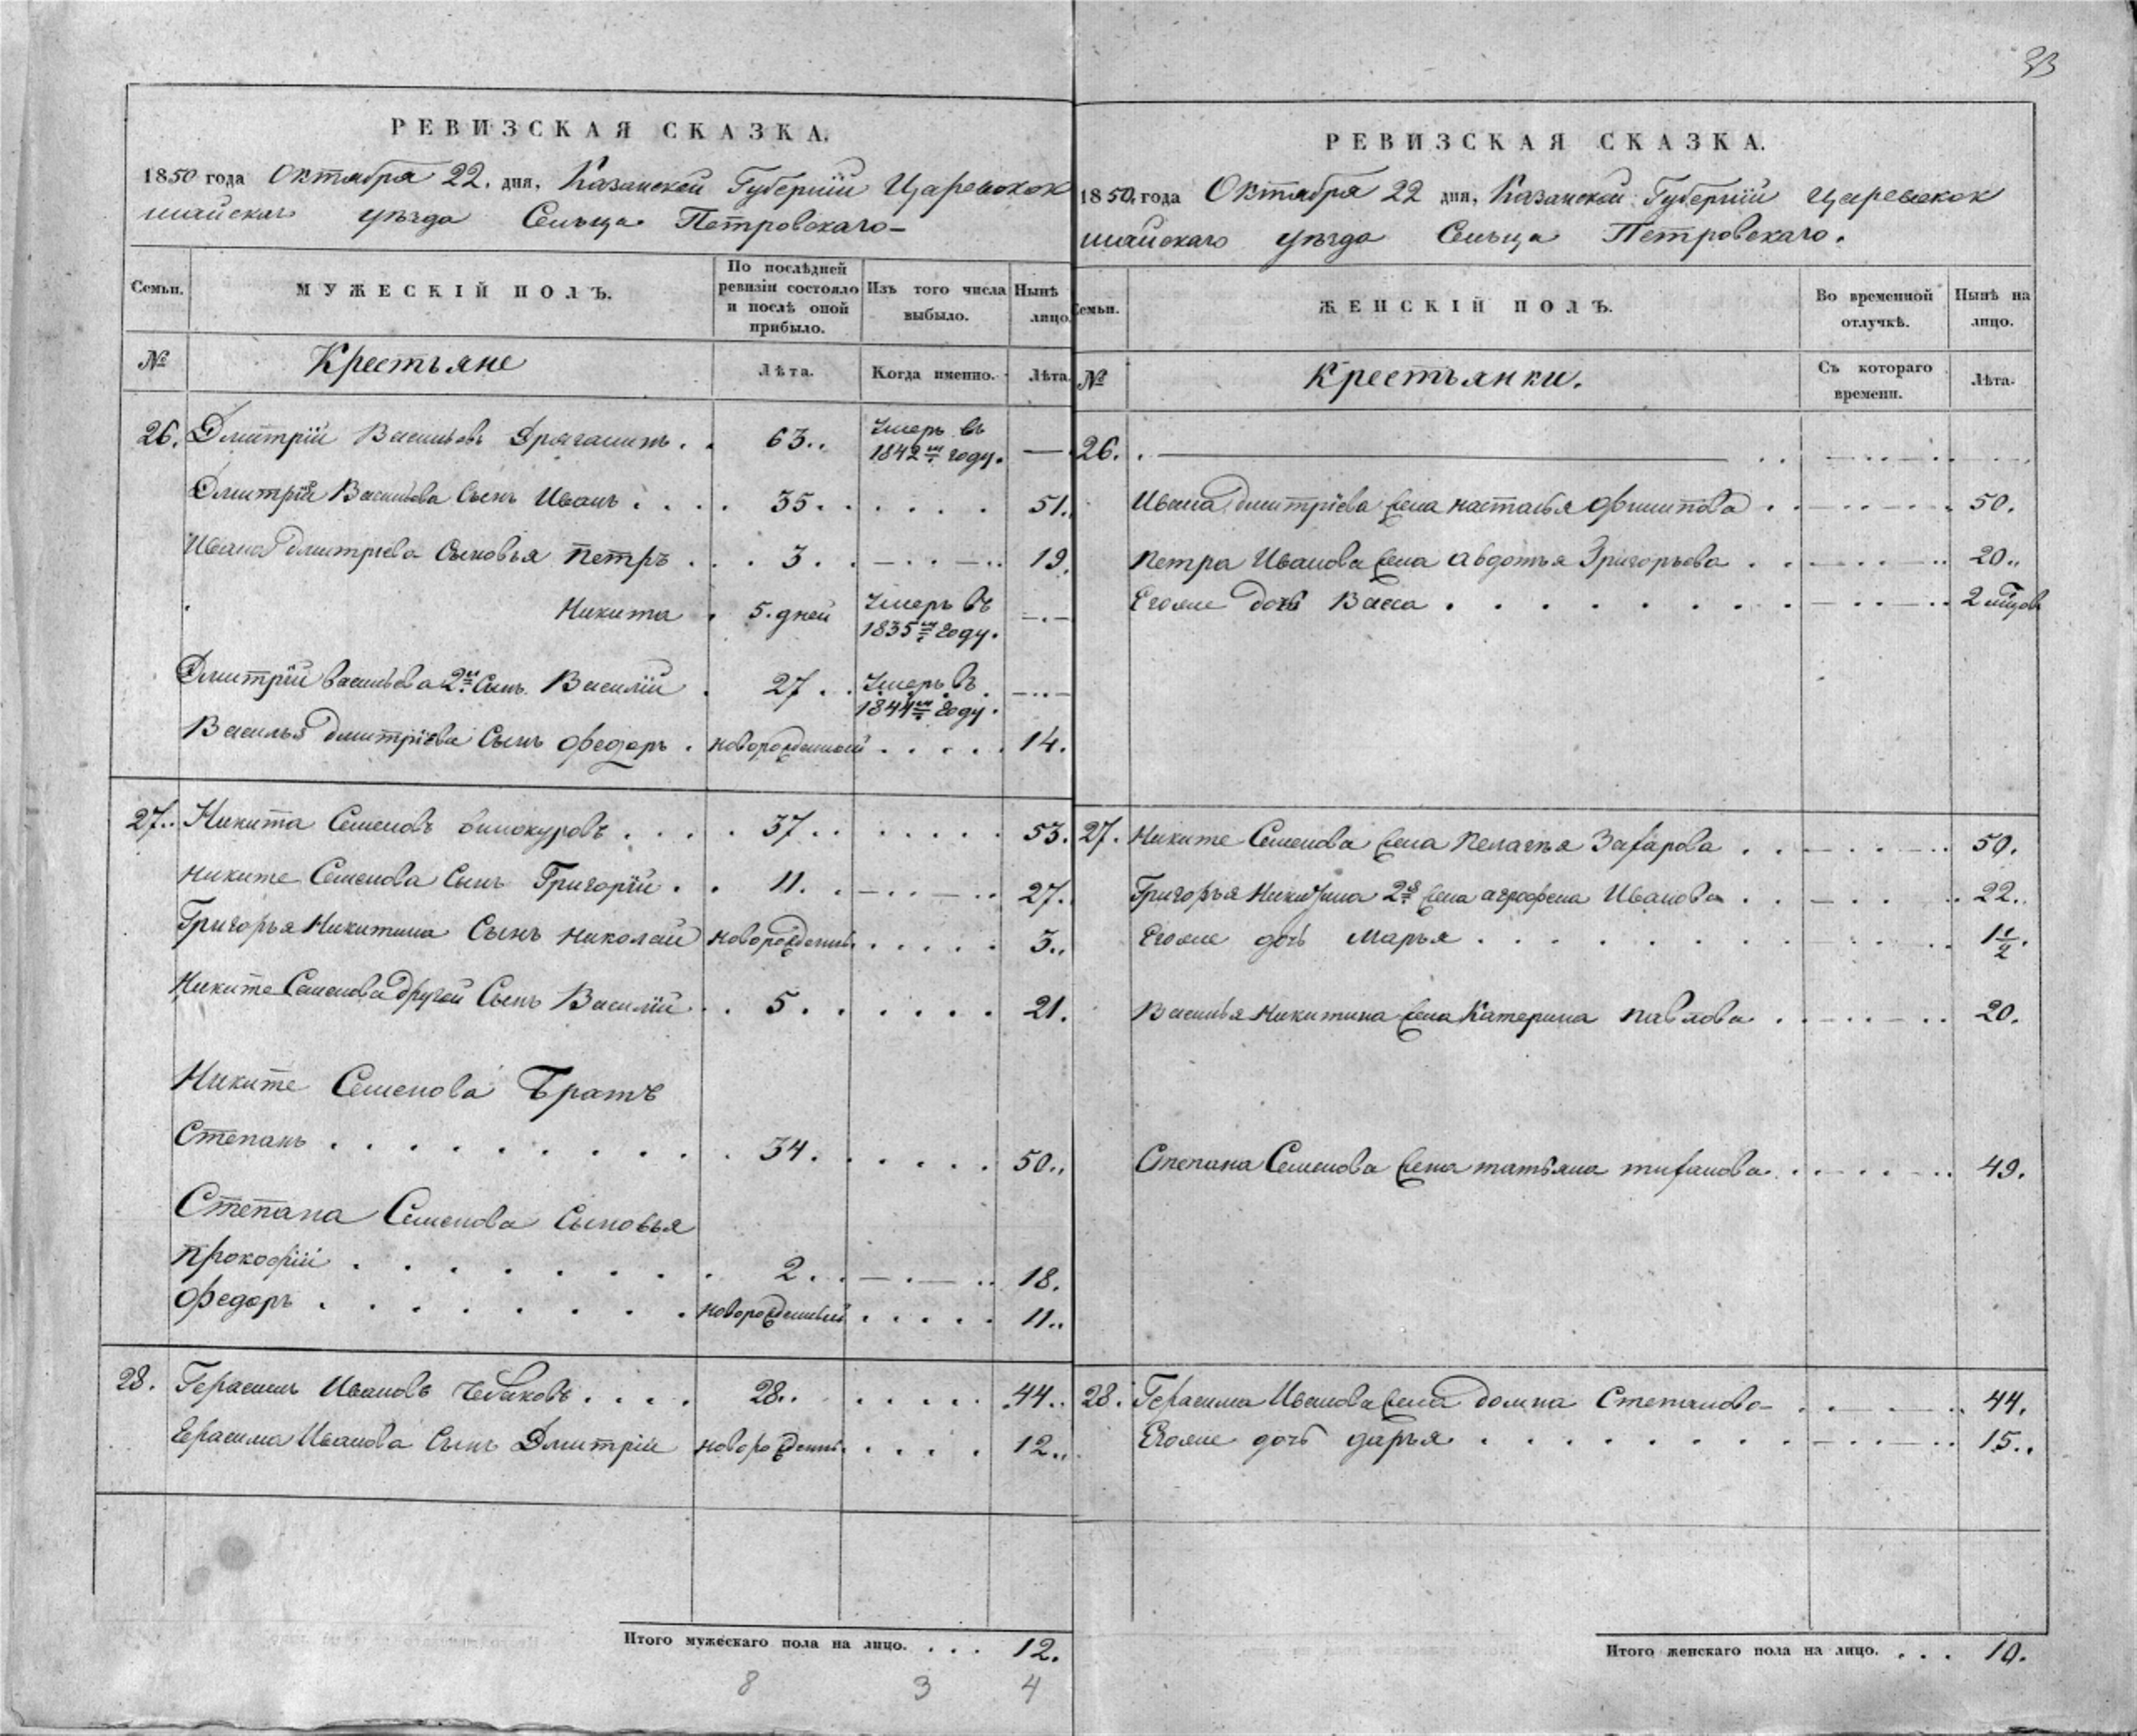 33
РЕВИЗСКАЯ СКАЗКА.
1850 года Октября 22. дня, Казанской Губернїи Царевокок
шайскаго уѣзда Сельца Петровскаго
Семьи.
МУЖЕСКІЙ ПОЛЪ.
По послѣдней ревизіи состояло и послѣ оной прибыло.
Изъ того числа выбыло.
Нынѣ лицо.
№ Крестьяне Лѣта. Когда именно. Лѣта.
26. Дмитрїй Васильевъ 63.. Умеръ въ 1842м году. —
Дмитрїя Васильева Сынъ Иванъ 35. 51.
Ивана Дмитрева Сыновья Петръ 3. 19.
Никита 5. дней Умеръ въ 1835м году.
Дмитрїи васильева 2й Сынъ Василїй 27 Умеръ въ 1844м году.
Василья Дмитрїева Сынъ Федоръ новорожденный 14.
27.. Никита Семеновъ винокуровъ 37.. 53.
Никите Семенова Сынъ Григорїй 11. 27.
Григорья Никитина Сынъ Николай новорожденны 3..
Никите Семенова другой Сынъ Василїй 5. 21.
Никите Семенова Братъ
Степанъ 34. 50..
Степана Семенова Сыновья
Прокофїй 2. 18.
Федоръ новорожденный 11..
28. Герасимъ Ивановъ 28.. 44..
Герасима Иванова Сынъ Дмитрїй новорожденны 12..
Итого мужескаго пола на лицо. 12.
8 3 4
РЕВИЗСКАЯ СКАЗКА.
1850, года Октября 22 дня, Казанской Губернїи Царевокок
шайскаго уѣзда Сельца Петровскаго.
Семьи.
ЖЕНСКІЙ ПОЛЪ.
Во временной отлучкѣ.
Нынѣ на лицо.
№ Крестьянки. Съ котораго времени. Лѣта.
26.
Ивана Дмитрїева жена настасья Филипова 50.
Петра Иванова жена Авдотья Григорьева 20..
Егоже дочь Васса 2
27. Никите Семенова жена Пелагья Захарова 50.
Григорья Никитина 2я жена аграфена Иванова 22..
Егоже дочь Марья 1 1/2.
Василья Никитина жена Катерина павлова 20.
Степана Семенова жена татьяна 49.
28. Герасима Иванова жена домна Степанова 44.
Егоже дочь дарья 15..
Итого женскаго пола на лицо. 10.